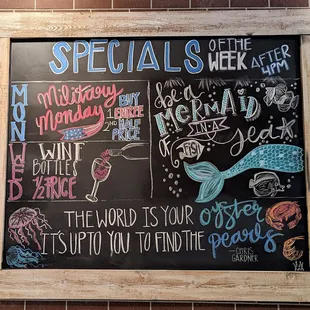 SPECIALS OF THE WEEK AFTER 4PM
MON
Military Monday
BUY 1 ENTREE
2ND HALF PRICE
WED
WINE BOTTLES
1/2 PRICE
Be a
MERMAID
IN A
Sea
of
FISH
THE WORLD IS YOUR Oyster
IT'S UP TO YOU TO FIND THE pearls
-CHRIS GARDNER